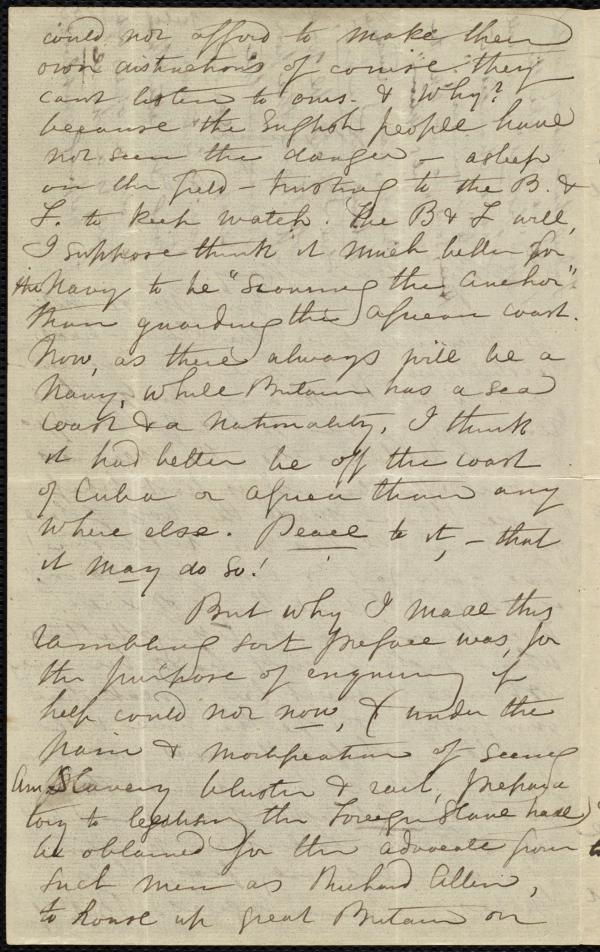 could not afford to make their
own distinctions of course they
cant listen to ours. & Why?
because the English people have
not seen the danger - asleep
on the field - trusting to the B. &
F. to keep watch. The B & F will,
I suppose think it much better for
the Navy to be "scouring the anchor"
than guarding the African coast.
Now, as there always will be a
Navy, while Britain has a sea
coast & a nationality, I think
it had better be off the coast
of Cuba or Africa than any
where else. Peace to it, - that
it may do so!
But why I made this
rambling sort preface was, for
the purpose of enquiring if
help could not now, & (under the
pain & mortification of seeing
Am. Slavery bluster & rail, prepara
tory to legalising the Foreign Slave trade)
be obtained for the advocate from
such men as Richard Allen,
to rouse up great Britain on